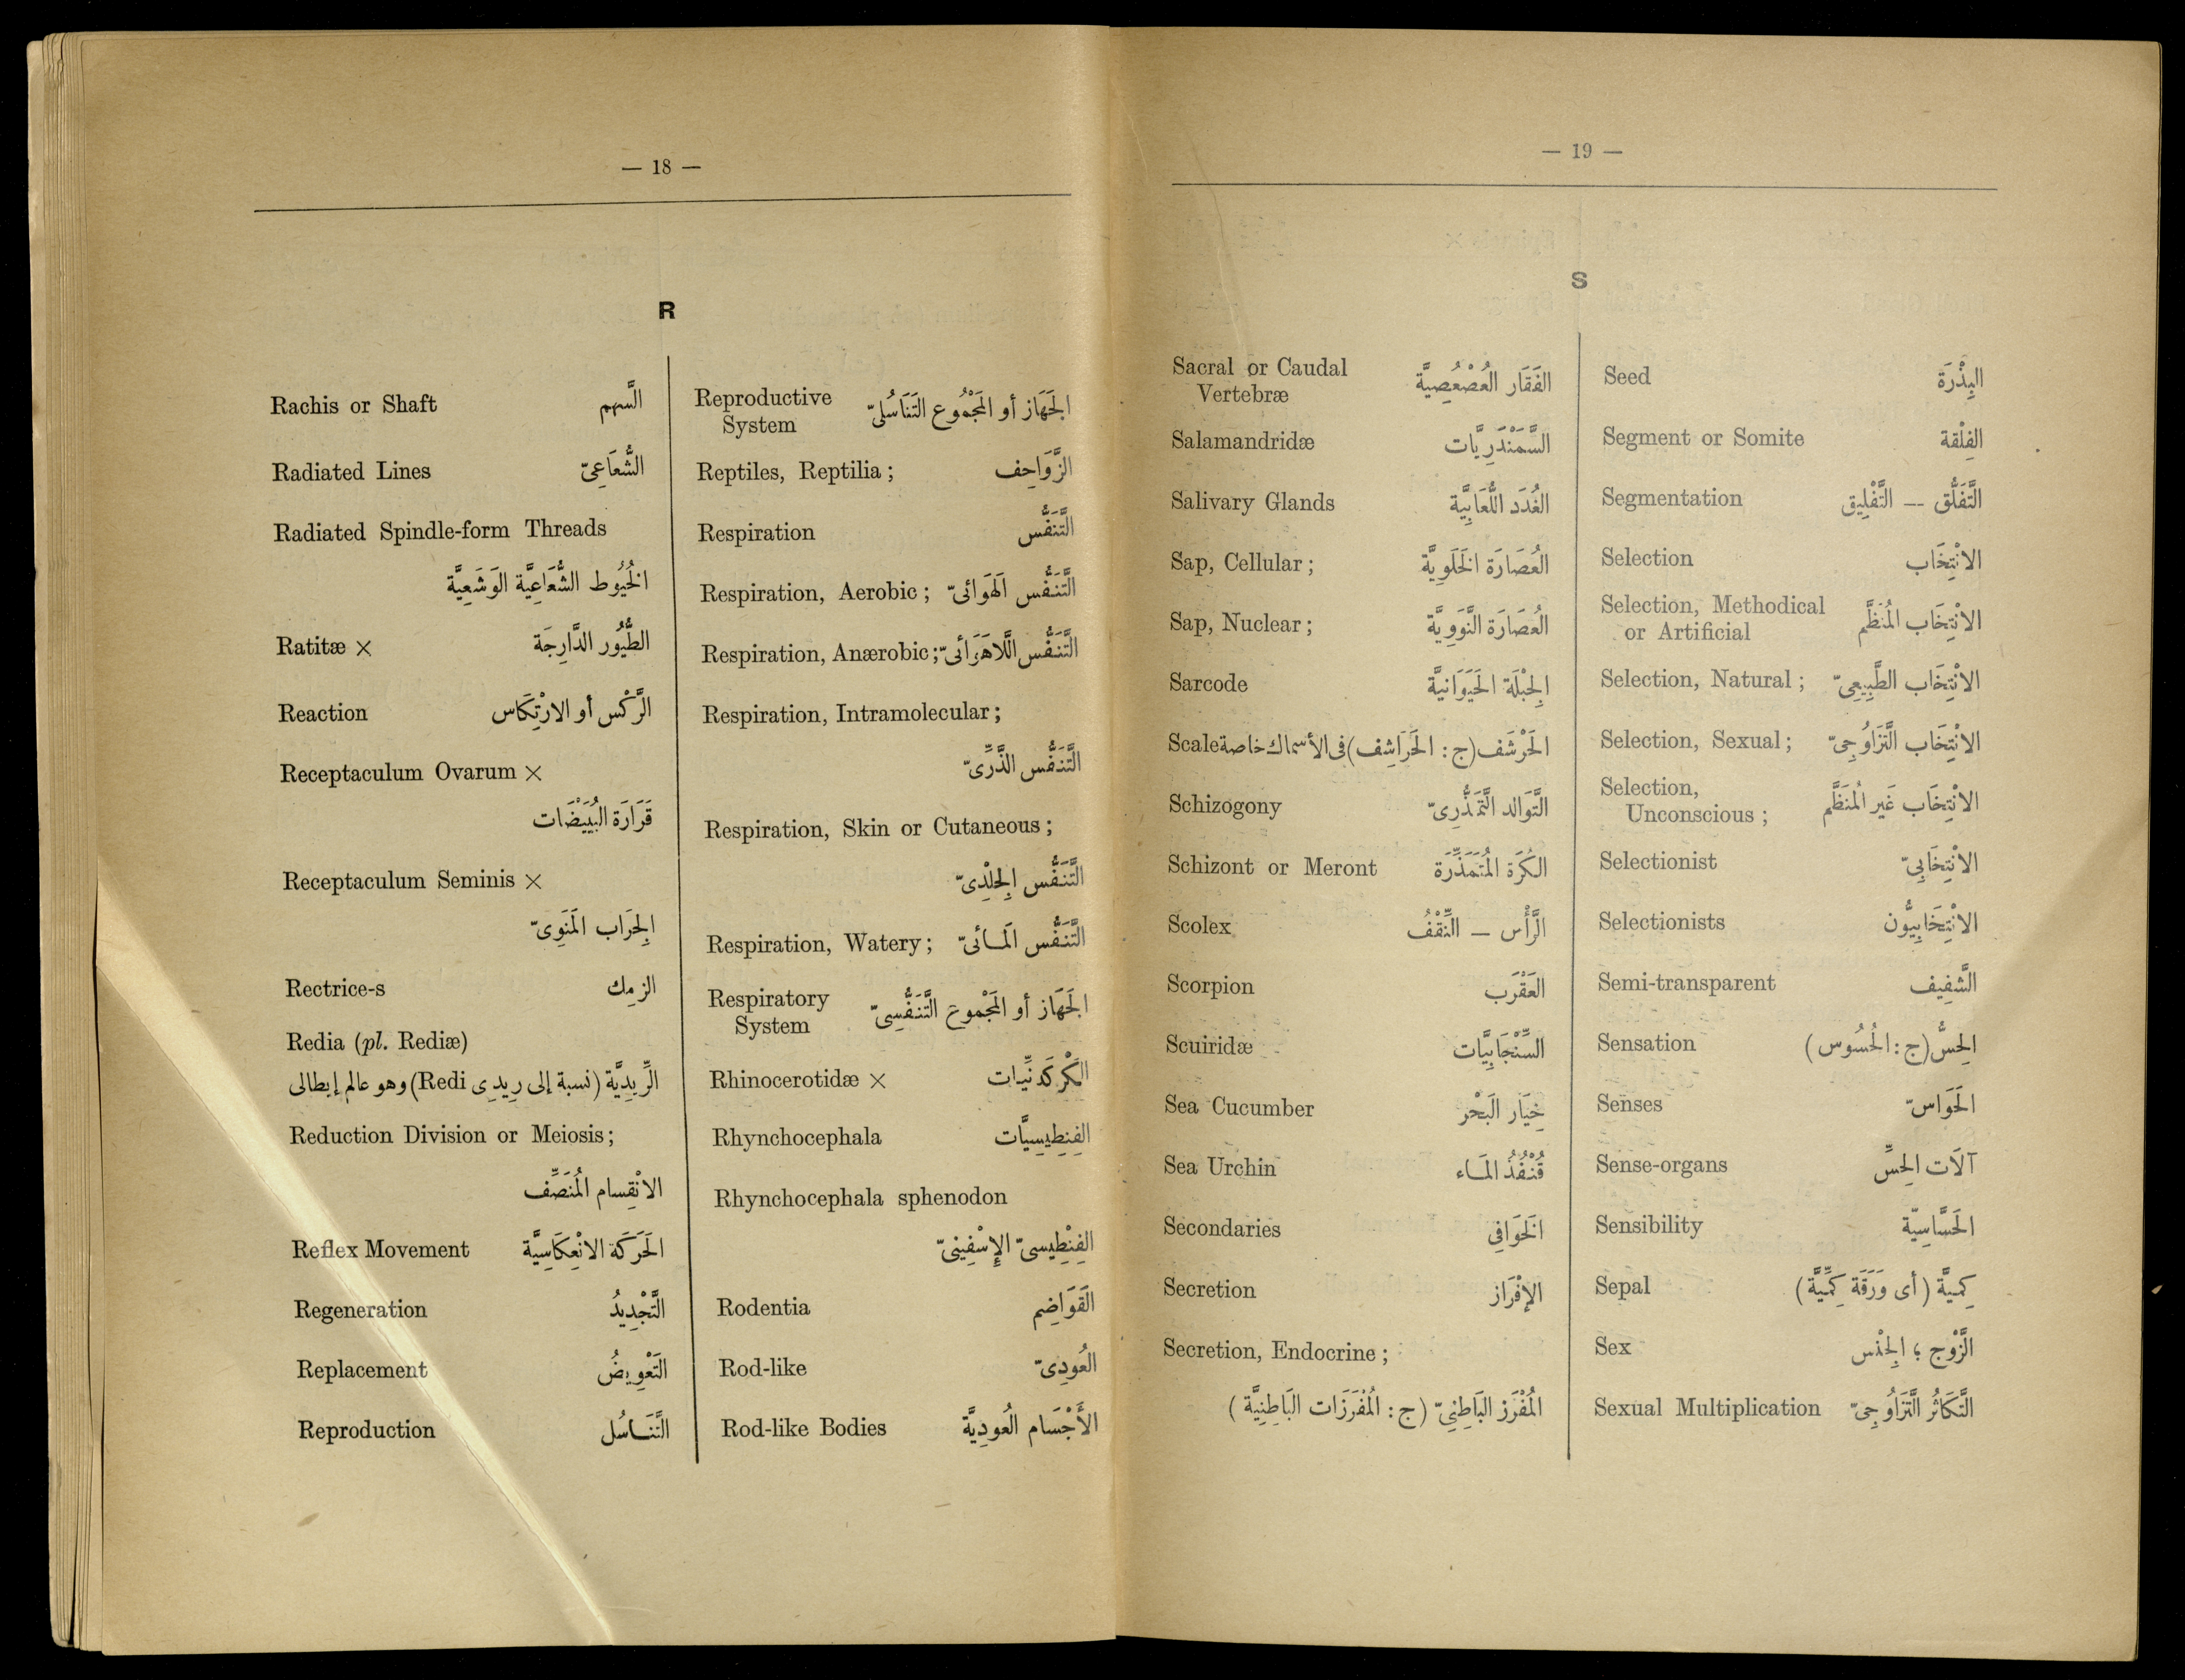 — 18 —
R
Rachis or Shaft السَّهم
Radiated Lines الشُّعَاعِىّ
Radiated Spindle-form Threads
الخُيُوط الشُّعَاعِيَّة الوَشَعِيَّة
Ratitæ × الطُّيُور الدَّارِجَة
Reaction الرَّكْس أو الارْتِكَاس
Receptaculum Ovarum ×
قَرَارَة البُيَيْضَات
Receptaculum Seminis ×
الجِرَاب المَنَوِىّ
Rectrice-s الزمِك
Redia (pl. Rediæ)
الرِّيدِيَّة (نسبة إلى رِيدِى Redi) وهو عالم إيطالى
Reduction Division or Meiosis ;
الانْقِسام المُنَصِّف
Reflex Movement الحَرَكَة الانْعِكَاسِيَّة
Regeneration التَّجْدِيدُ
Replacement التَعْوِيضُ
Reproduction التَّنَاسُل
Reproductive
System الجَهَاز أو المَجْمُوع التَنَاسُلىّ
Reptiles, Reptilia ; الزَّوَاحِف
Respiration التَّنَفُّس
Respiration, Aerobic ; التَّنَفُّس الهَوَائىّ
Respiration, Anærobic ; التَّنَفُّس اللَّاهَوَائىّ
Respiration, Intramolecular ;
التَّنَفُّس الذَّرِّىّ
Respiration, Skin or Cutaneous ;
التَّنَفُّس الجِلْدِىّ
Respiration, Watery ; التَّنَفُّس المَائىّ
Respiratory
System الجَهَاز أو المَجْموع التَّنَفُّسِىّ
Rhinocerotidæ × الكَرْكَدنِّيات
Rhynchocephala الفِنِطِيسِيَّات
Rhynchocephala sphenodon
الفِنْطِيسىّ الإِسْفِينىّ
Rodentia القَوَاضِم
Rod-like العُودِىّ
Rod-like Bodies الأَجْسَام العُودِيَّة
— 19 —
S
Sacral or Caudal
Vertebræ الفَقَار العُصْعُصِيَّة
Salamandridæ السَّمَنْدَرِيَّات
Salivary Glands الغُدَد اللُّعَابِيَّة
Sap, Cellular ; العُصَارَة الخَلَوِيَّة
Sap, Nuclear ; العُصَارَة النَّوَوِيَّة
Sarcode الجِبْلَة الحَيَوَانيَّة
Scale الحَرْشَف (ج : الحَرَاشِف) فى الأسماك خاصة
Schizogony التَّوَالد التَّمَذُّرِىّ
Schizont or Meront الكُرَة المُتَمَذِّرَة
Scolex الرَّأْس — النِّقْفُ
Scorpion العَقْرَب
Scuiridæ السِّنْجَابِيَّات
Sea Cucumber خِيَار البَحْر
Sea Urchin قُنْفُذُ المَاء
Secondaries الخَوَافِى
Secretion الإِفْرَاز
Secretion, Endocrine ;
المُفْرَز البَاطِنِىّ (ج : المُفْرَزَات البَاطِنِيَّة )
Seed البِذْرَة
Segment or Somite الفِلْقة
Segmentation التَّفَلُّق — التَّفْلِيق
Selection الانْتِخَاب
Selection, Methodical
or Artificial الانْتِخَاب المُنَظَّم
Selection, Natural ; الانْتِخَاب الطَّبِيعِىّ
Selection, Sexual ; الانْتِخَاب التَّزَاوُجِىّ
Selection,
Unconscious ; الانْتِخَاب غَير المُنَظَّم
Selectionist الانْتِخَابِىّ
Selectionists الانْتِخَابِيُّون
Semi-transparent الشَّفِيف
Sensation الحِسُّ (ج : الحُسُوس )
Senses الحَوَاسّ
Sense-organs آلَات الحِسِّ
Sensibility الحَسَّاسِيّة
Sepal كِميَّة ( أى وَرَقَة كِمِّيَّة )
Sex الزَّوْج ؛ الجِنْس
Sexual Multiplication التَّكَاثُر التَّزَاوُجِىّ